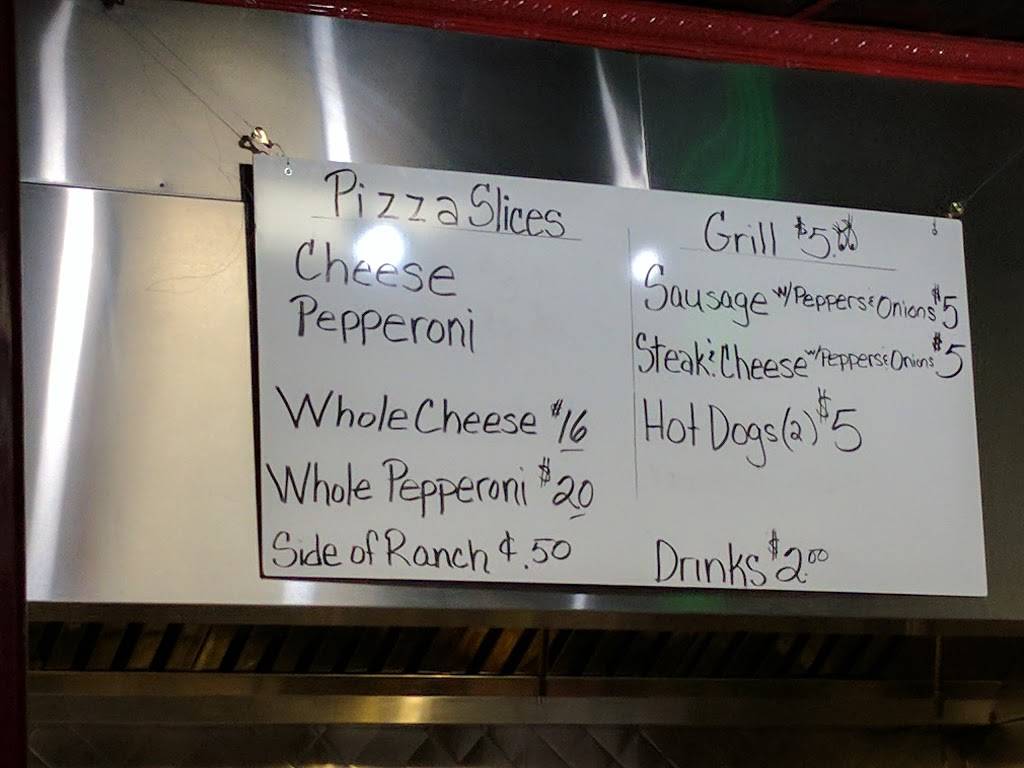 Pizza Slices
Cheese
Pepperoni
Whole Cheese $16
Whole Pepperoni $20
Side of Ranch ¢.50
Grill $5.00
Sausage w/Peppers & Onions $5
Steak & Cheese w/Peppers & Onions $5
Hot Dogs (2) $5
Drinks $2.00